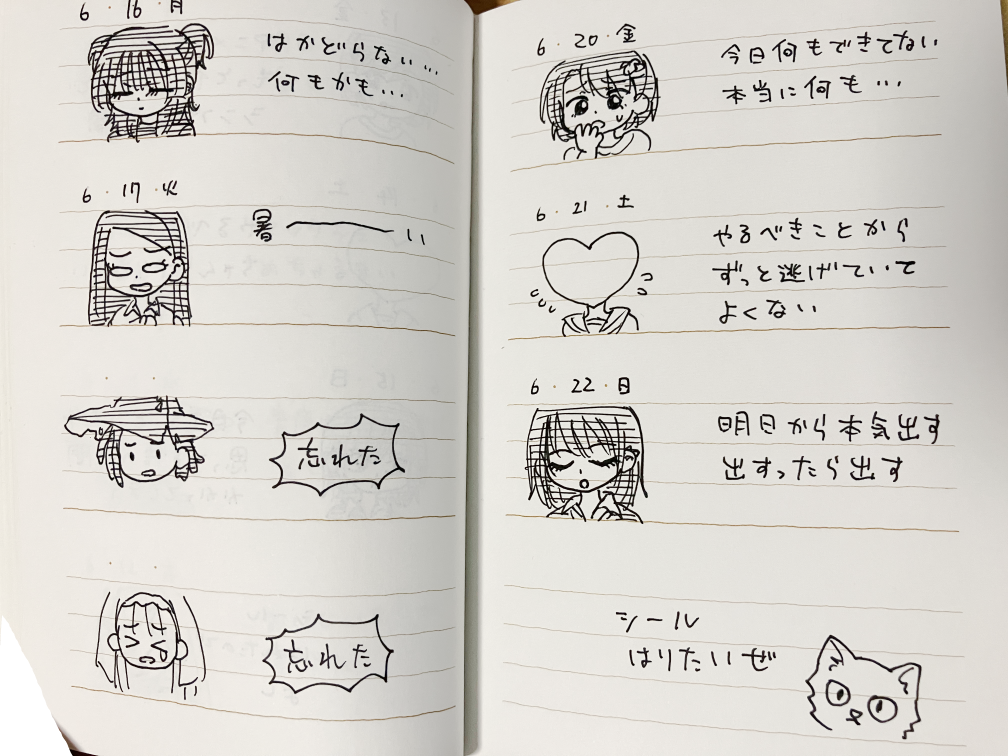 6・16・月
はかどらない…
何もかも…
6・17・火
暑――い
忘れた
忘れた
6・20・金
今日何もできてない
本当に何も…
6・21・土
やるべきことから
ずっと逃げていて
よくない
6・22・日
明日から本気出す
出すったら出す
シール
はりたいぜ